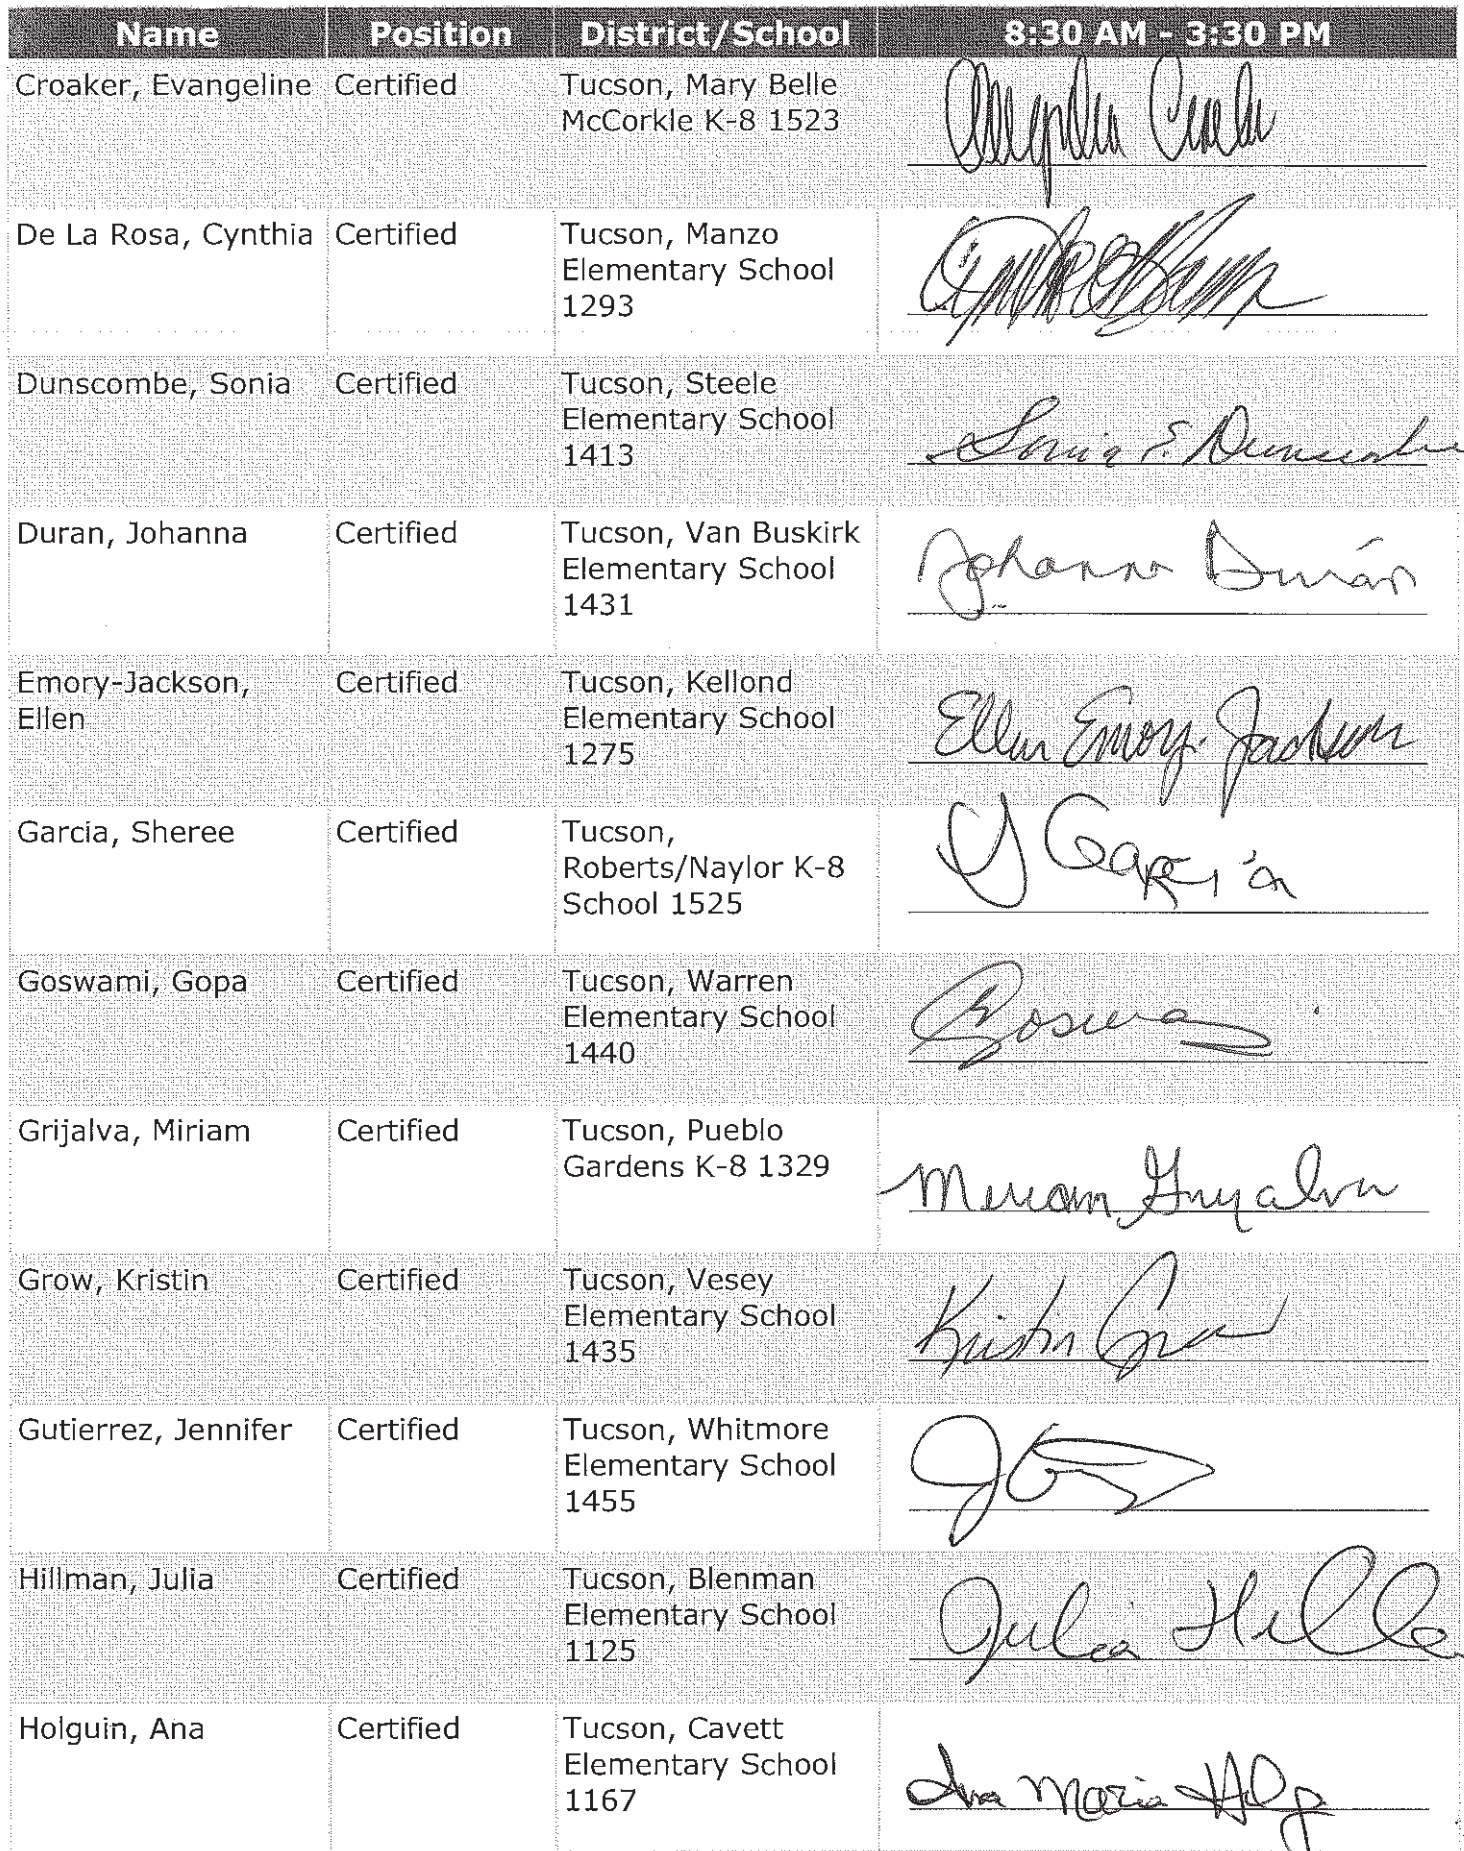 Name Position District/School 8:30 AM - 3:30 PM
Croaker, Evangeline Certified Tucson, Mary Belle
McCorkle K-8 1523
De La Rosa, Cynthia Certified Tucson, Manzo
Elementary School
1293
Dunscombe, Sonia Certified Tucson, Steele
Elementary School
1413
Sonia E. Dunscombe
Duran, Johanna Certified Tucson, Van Buskirk
Elementary School
1431
Johanna Durán
Emory-Jackson, Certified Tucson, Kellond
Ellen Elementary School
1275
Ellen Emory-Jackson
Garcia, Sheree Certified Tucson,
Roberts/Naylor K-8
School 1525
García
Goswami, Gopa Certified Tucson, Warren
Elementary School
1440
Grijalva, Miriam Certified Tucson, Pueblo
Gardens K-8 1329
Miriam Grijalva
Grow, Kristin Certified Tucson, Vesey
Elementary School
1435
Kristin Grow
Gutierrez, Jennifer Certified Tucson, Whitmore
Elementary School
1455
Hillman, Julia Certified Tucson, Blenman
Elementary School
1125
Julia
Holguin, Ana Certified Tucson, Cavett
Elementary School
1167
Ana Maria